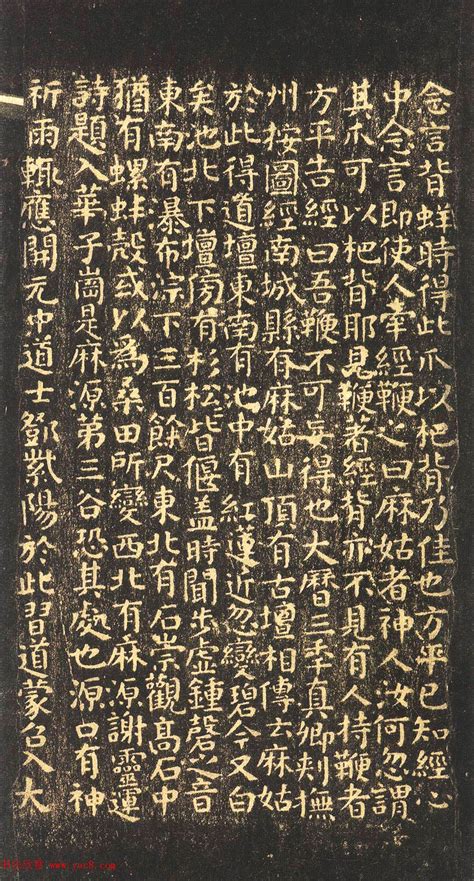 念言背蛘時得此爪以杷背乃佳也方平已知經心
中念言即使人牽經鞭之曰麻姑者神人汝何忽謂
其爪可以杷背耶見鞭著經背亦不見有人持鞭者
方平告經曰吾鞭不可妄得也大曆三季真卿刾撫
州按圖經南城縣有麻姑山頂有古壇相傳云麻姑
於此得道壇東南有池中有紅蓮近忽變碧今又白
矣池北下壇傍有杉松皆偃盖時聞步虛鍾磬之音
東南有瀑布淙下三百餘尺東北有石崇觀高石中
猶有螺蚌殼或以為桑田所變西北有麻源謝靈運
詩題入華子崗是麻源第三谷恐其處也源口有神
祈雨輒應開元中道士鄧紫陽於此習道蒙召入大
www.yac8.com